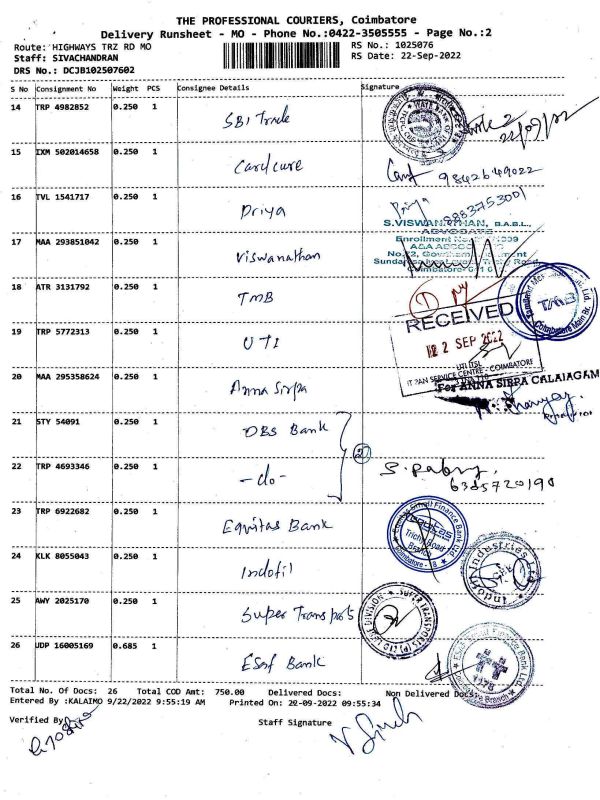 THE PROFESSIONAL COURIERS, Coimbatore
Delivery Runsheet - MO - Phone No.:0422-3505555 - Page No.:2
Route: HIGHWAYS TRZ RD MO RS No.: 1025076
Staff: SIVACHANDRAN RS Date: 22-Sep-2022
DRS No.: DCJB102507602
S No Consignment No Weight PCS Consignee Details Signature
14 TRP 4982852 0.250 1 SBI Trade
15 IXM 502014658 0.250 1 Card cure 9842649022
16 TVL 1541717 0.250 1 Priya Priya 9883753001
S.VISWANATHAN, B.A.B.L.,
ADVOCATE
17 MAA 293851042 0.250 1 Viswanathan
18 ATR 3131792 0.250 1 TMB TMB
Coimbatore Main Br.
19 TRP 5772313 0.250 1 UTI RECEIVED
2 SEP 2022
UTI ITSL
IT PAN SERVICE CENTRE - COIMBATORE
20 MAA 295358624 0.250 1 Anna Sirpa For ANNA SIRPA CALAIAGAM
Proprietor
21 STY 54091 0.250 1 DBS Bank
22 TRP 4693346 0.250 1 -do- 2 6385720190
23 TRP 6922682 0.250 1 Equitas Bank
Equitas Small Finance Bank Ltd.
24 KLK 8055043 0.250 1 Indofil
Indofil Industries Ltd
25 AWY 2025170 0.250 1 Super Transports
SUPER TRANSPORTS (P) LTD
26 UDP 16005169 0.685 1 ESaf Bank
1178
Total No. Of Docs: 26 Total COD Amt: 750.00 Delivered Docs: Non Delivered Docs:
Entered By :KALAIMO 9/22/2022 9:55:19 AM Printed On: 22-09-2022 09:55:34
Verified By Staff Signature